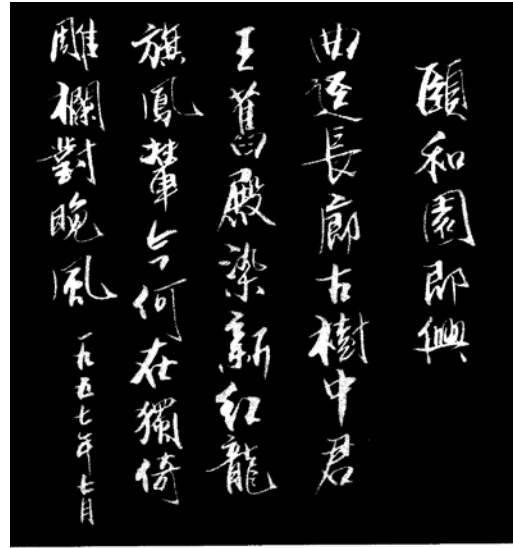 頤和園即興
曲迳長廊古樹中君
王舊殿染新紅龍
旗鳳輦今何在獨倚
雕欄對晚風
一九五七年七月